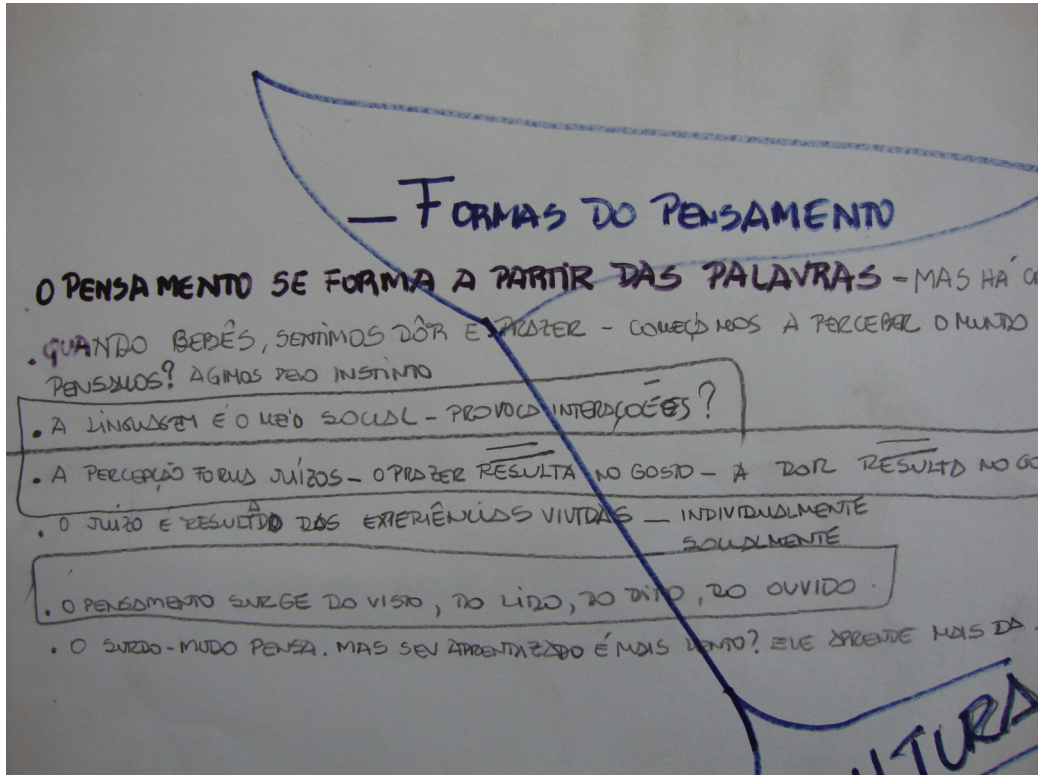 — FORMAS DO PENSAMENTO
O PENSAMENTO SE FORMA A PARTIR DAS PALAVRAS - MAS HÁ
. QUANDO BEBÊS, SENTIMOS DÔR E PRAZER - COMEÇAMOS A PERCEBER O MUNDO
PENSAMOS? AGIMOS PELO INSTINTO
. A LINGUAGEM É O MEIO SOCIAL - PROVOCA INTERAÇÕES?
. A PERCEPÇÃO FORMA JUÍZOS - O PRAZER RESULTA NO GOSTO - A DOR RESULTA NO GO
. O JUÍZO É RESULTADO DAS EXPERIÊNCIAS VIVIDAS — INDIVIDUALMENTE
SOCIALMENTE
. O PENSAMENTO SURGE DO VISTO, DO LIDO, DO DITO, DO OUVIDO.
. O SURDO-MUDO PENSA. MAS SEU APRENTIZADO É MAIS LENTO? ELE APRENDE MAIS DA
LTURA